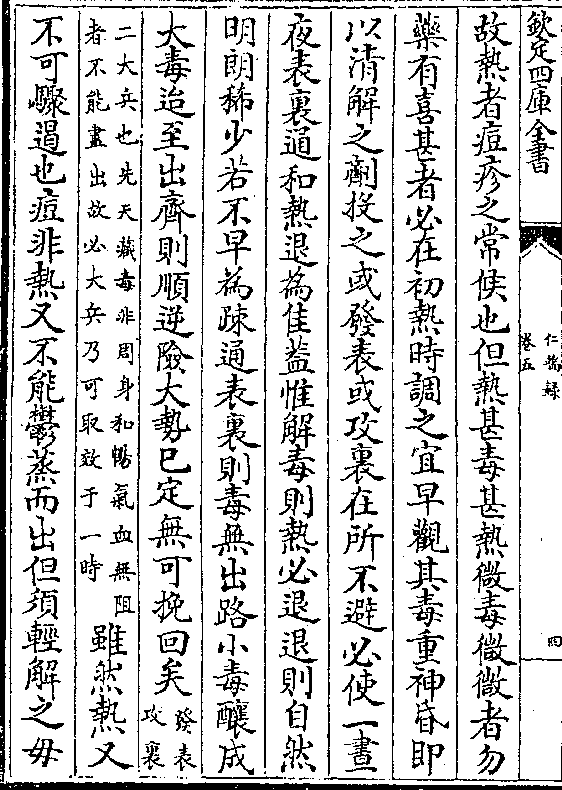 欽定四庫全書
仁端錄
卷五
四
故熱者痘疹之常候也但熱甚毒甚熱微毒微微者勿
藥有喜甚者必在初熱時調之宜早觀其毒重神昏即
以清解之劑投之或發表或攻裏在所不避必使一晝
夜表裏通和熱退為佳葢惟解毒則熱必退退則自然
明朗稀少若不早為疎通表裏則毒無出路小毒釀成
大毒迨至出齊則順逆險大勢已定無可挽回矣發表
攻裏
二大兵也先天藏毒非周身和暢氣血無阻
者不能盡出故必大兵乃可取效于一時
雖然熱又
不可驟遏也痘非熱又不能鬱蒸而出但須輕解之毋